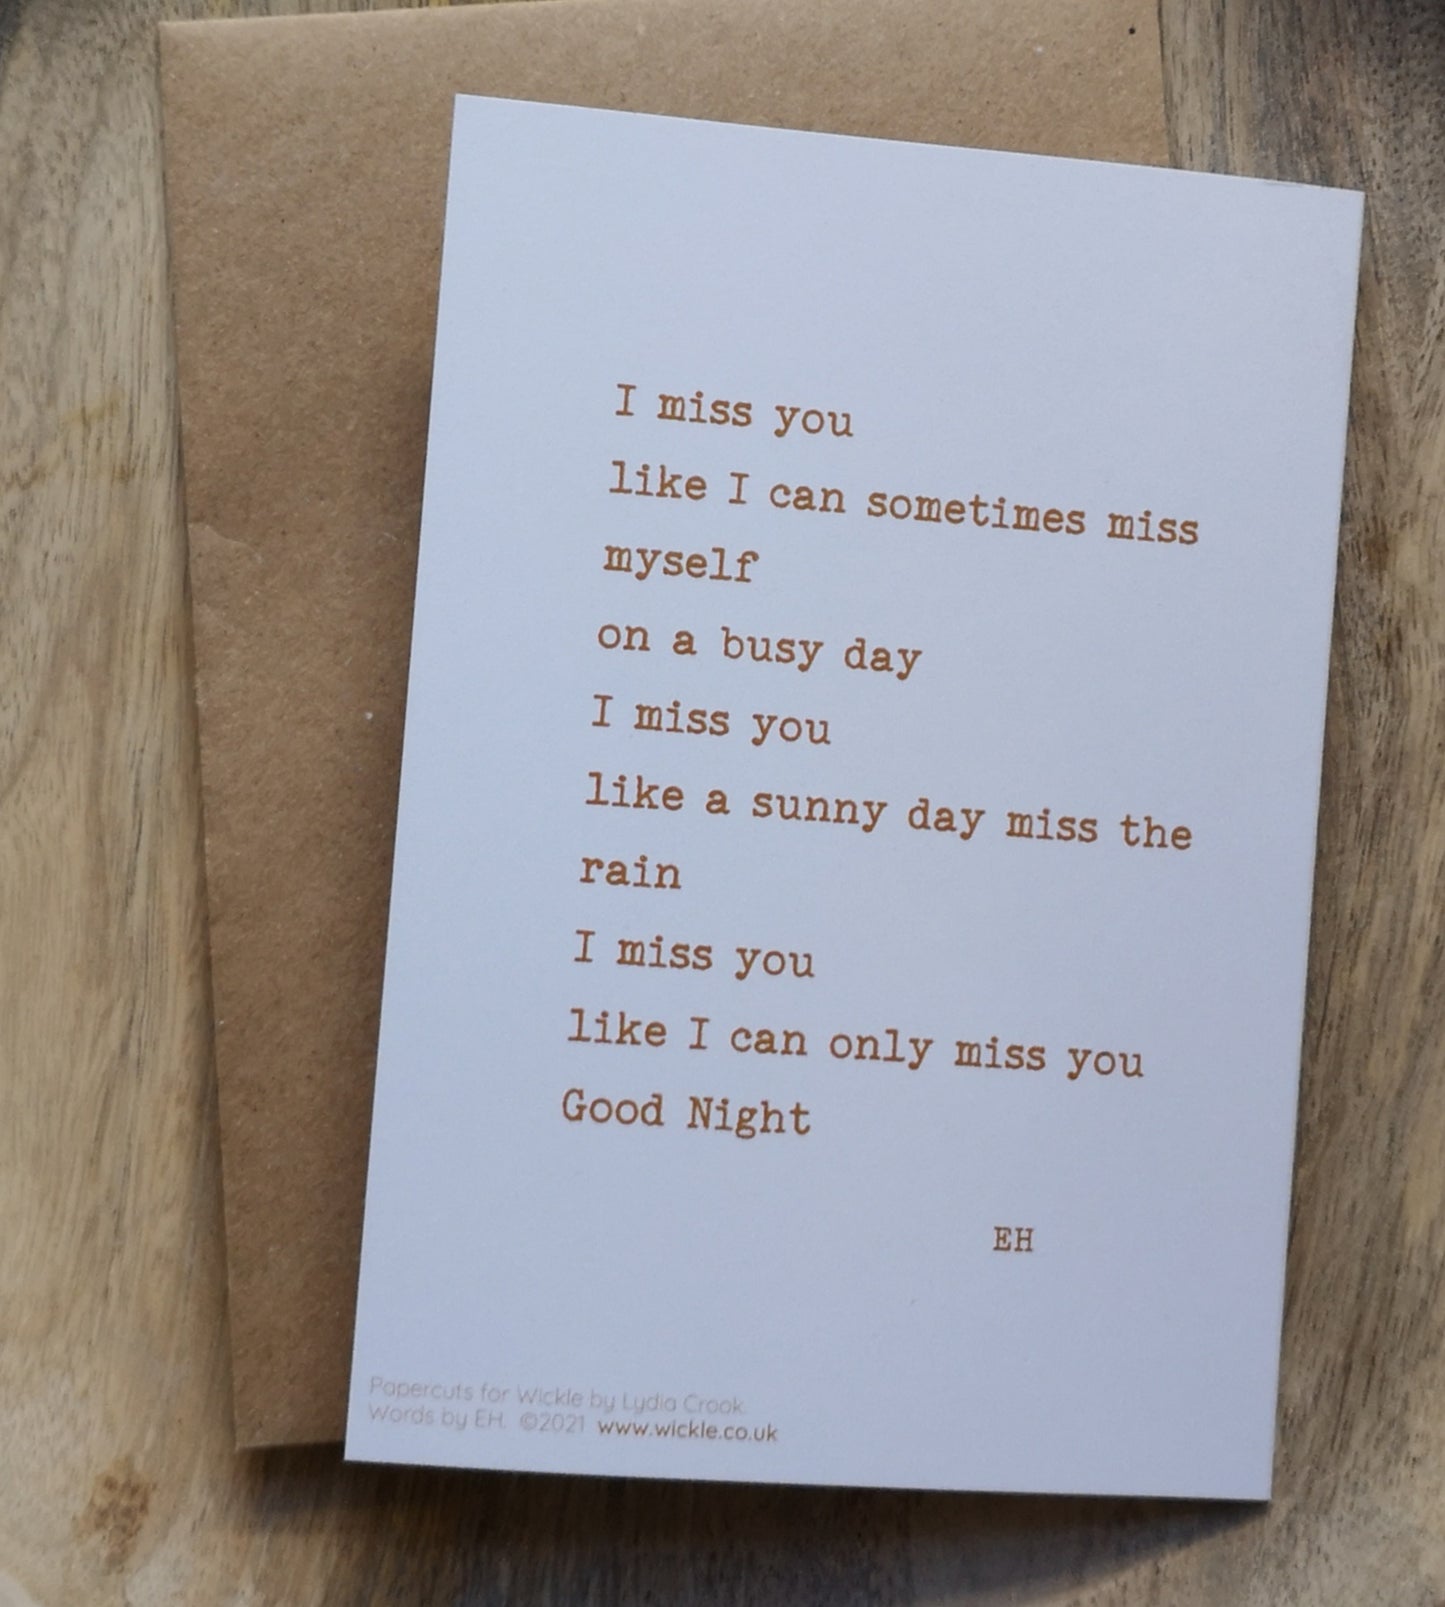 I miss you
like I can sometimes miss
myself
on a busy day
I miss you
like a sunny day miss the
rain
I miss you
like I can only miss you
Good Night
EH
Papercuts for Wickle by Lydia Crook.
Words by EH. ©2021 www.wickle.co.uk